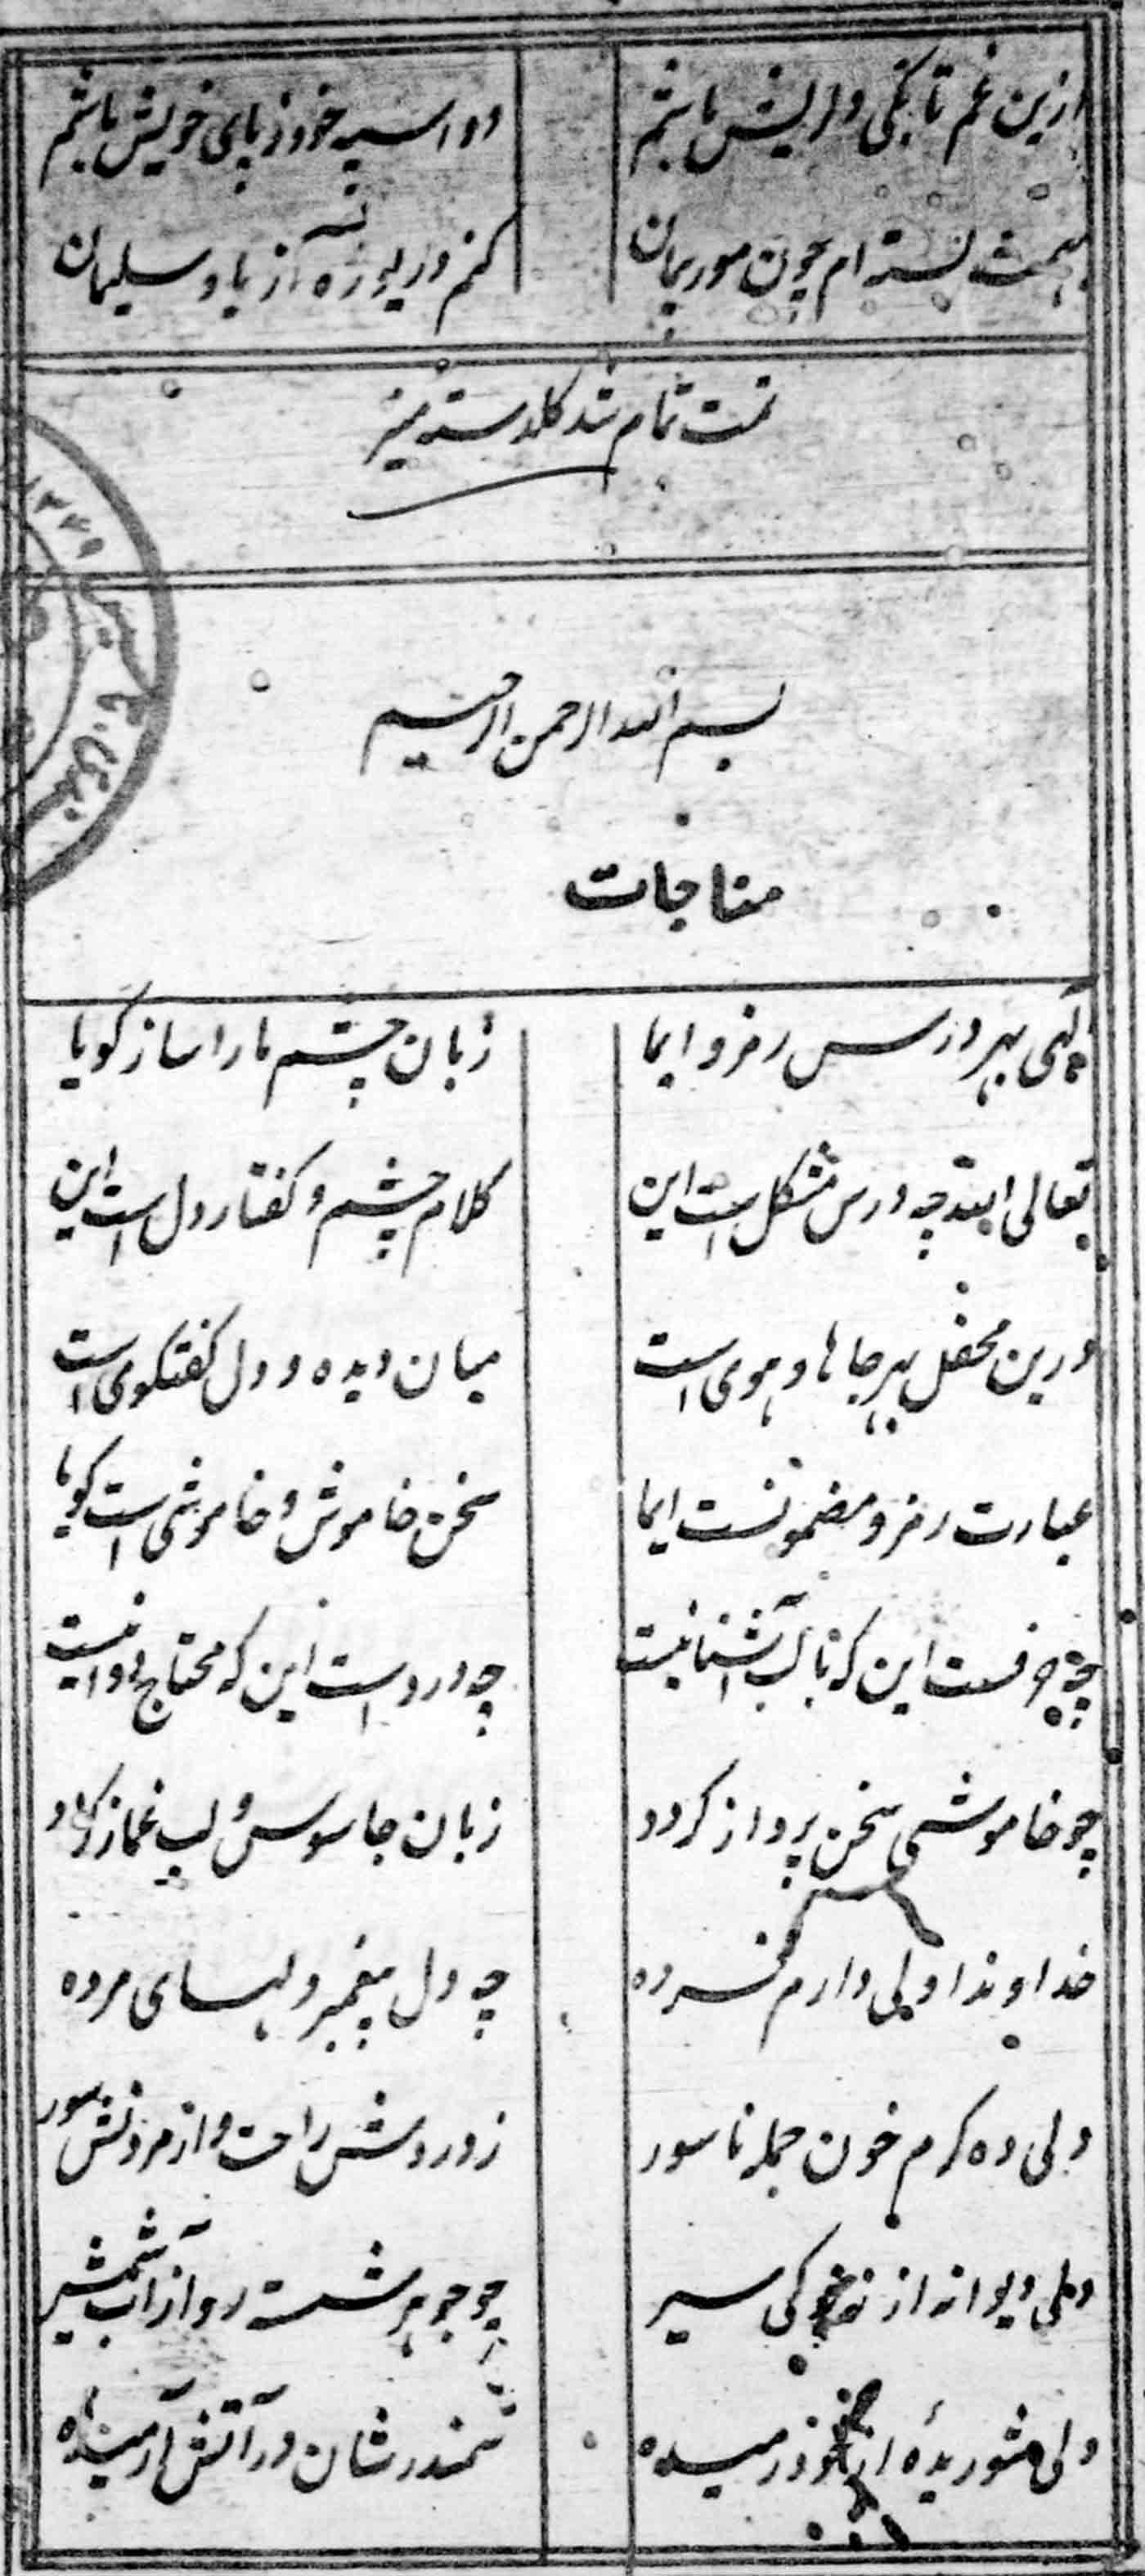 ازین غم تا بکی دلریش باشم دو اسپه خود ز پای خویش باشم
بهمت بسته ام چون مور پیمان کنم دریوزه از باد سلیمان
تمت تمام شد کلدسته منیر
بسم الله الرحمن الرحیم
مناجات
الهی بهر درس رمز و ایما زبان چشم ما را ساز کویا
تعالی الله چه درس مشکل است این کلام چشم و کفتار دل است این
درین محفل بهر جا های و هوی است میان دیده و دل کفتکوی است
عبارت رمز و مضمونست ایما سخن خاموش و خاموشی است کویا
چه حرفست این که با لب آشنا نیست چه درد است این که محتاج دوا نیست
چو خاموشی سخن پرداز کردد زبان جاسوس و لب غماز کردد
خداوندا دلی دارم فسرده چه دل پیغمبر دلهای مرده
دلی ده کرم خون جمله ناسور ز دردش راحت و از مردنش سور
دلی دیوانه از خود کی سیر چو جوهر شسته رو از آب شمشیر
دلی شوریدهٔ از خود رمیده سمندرشان در آتش آرمیده
۱۳۴۹